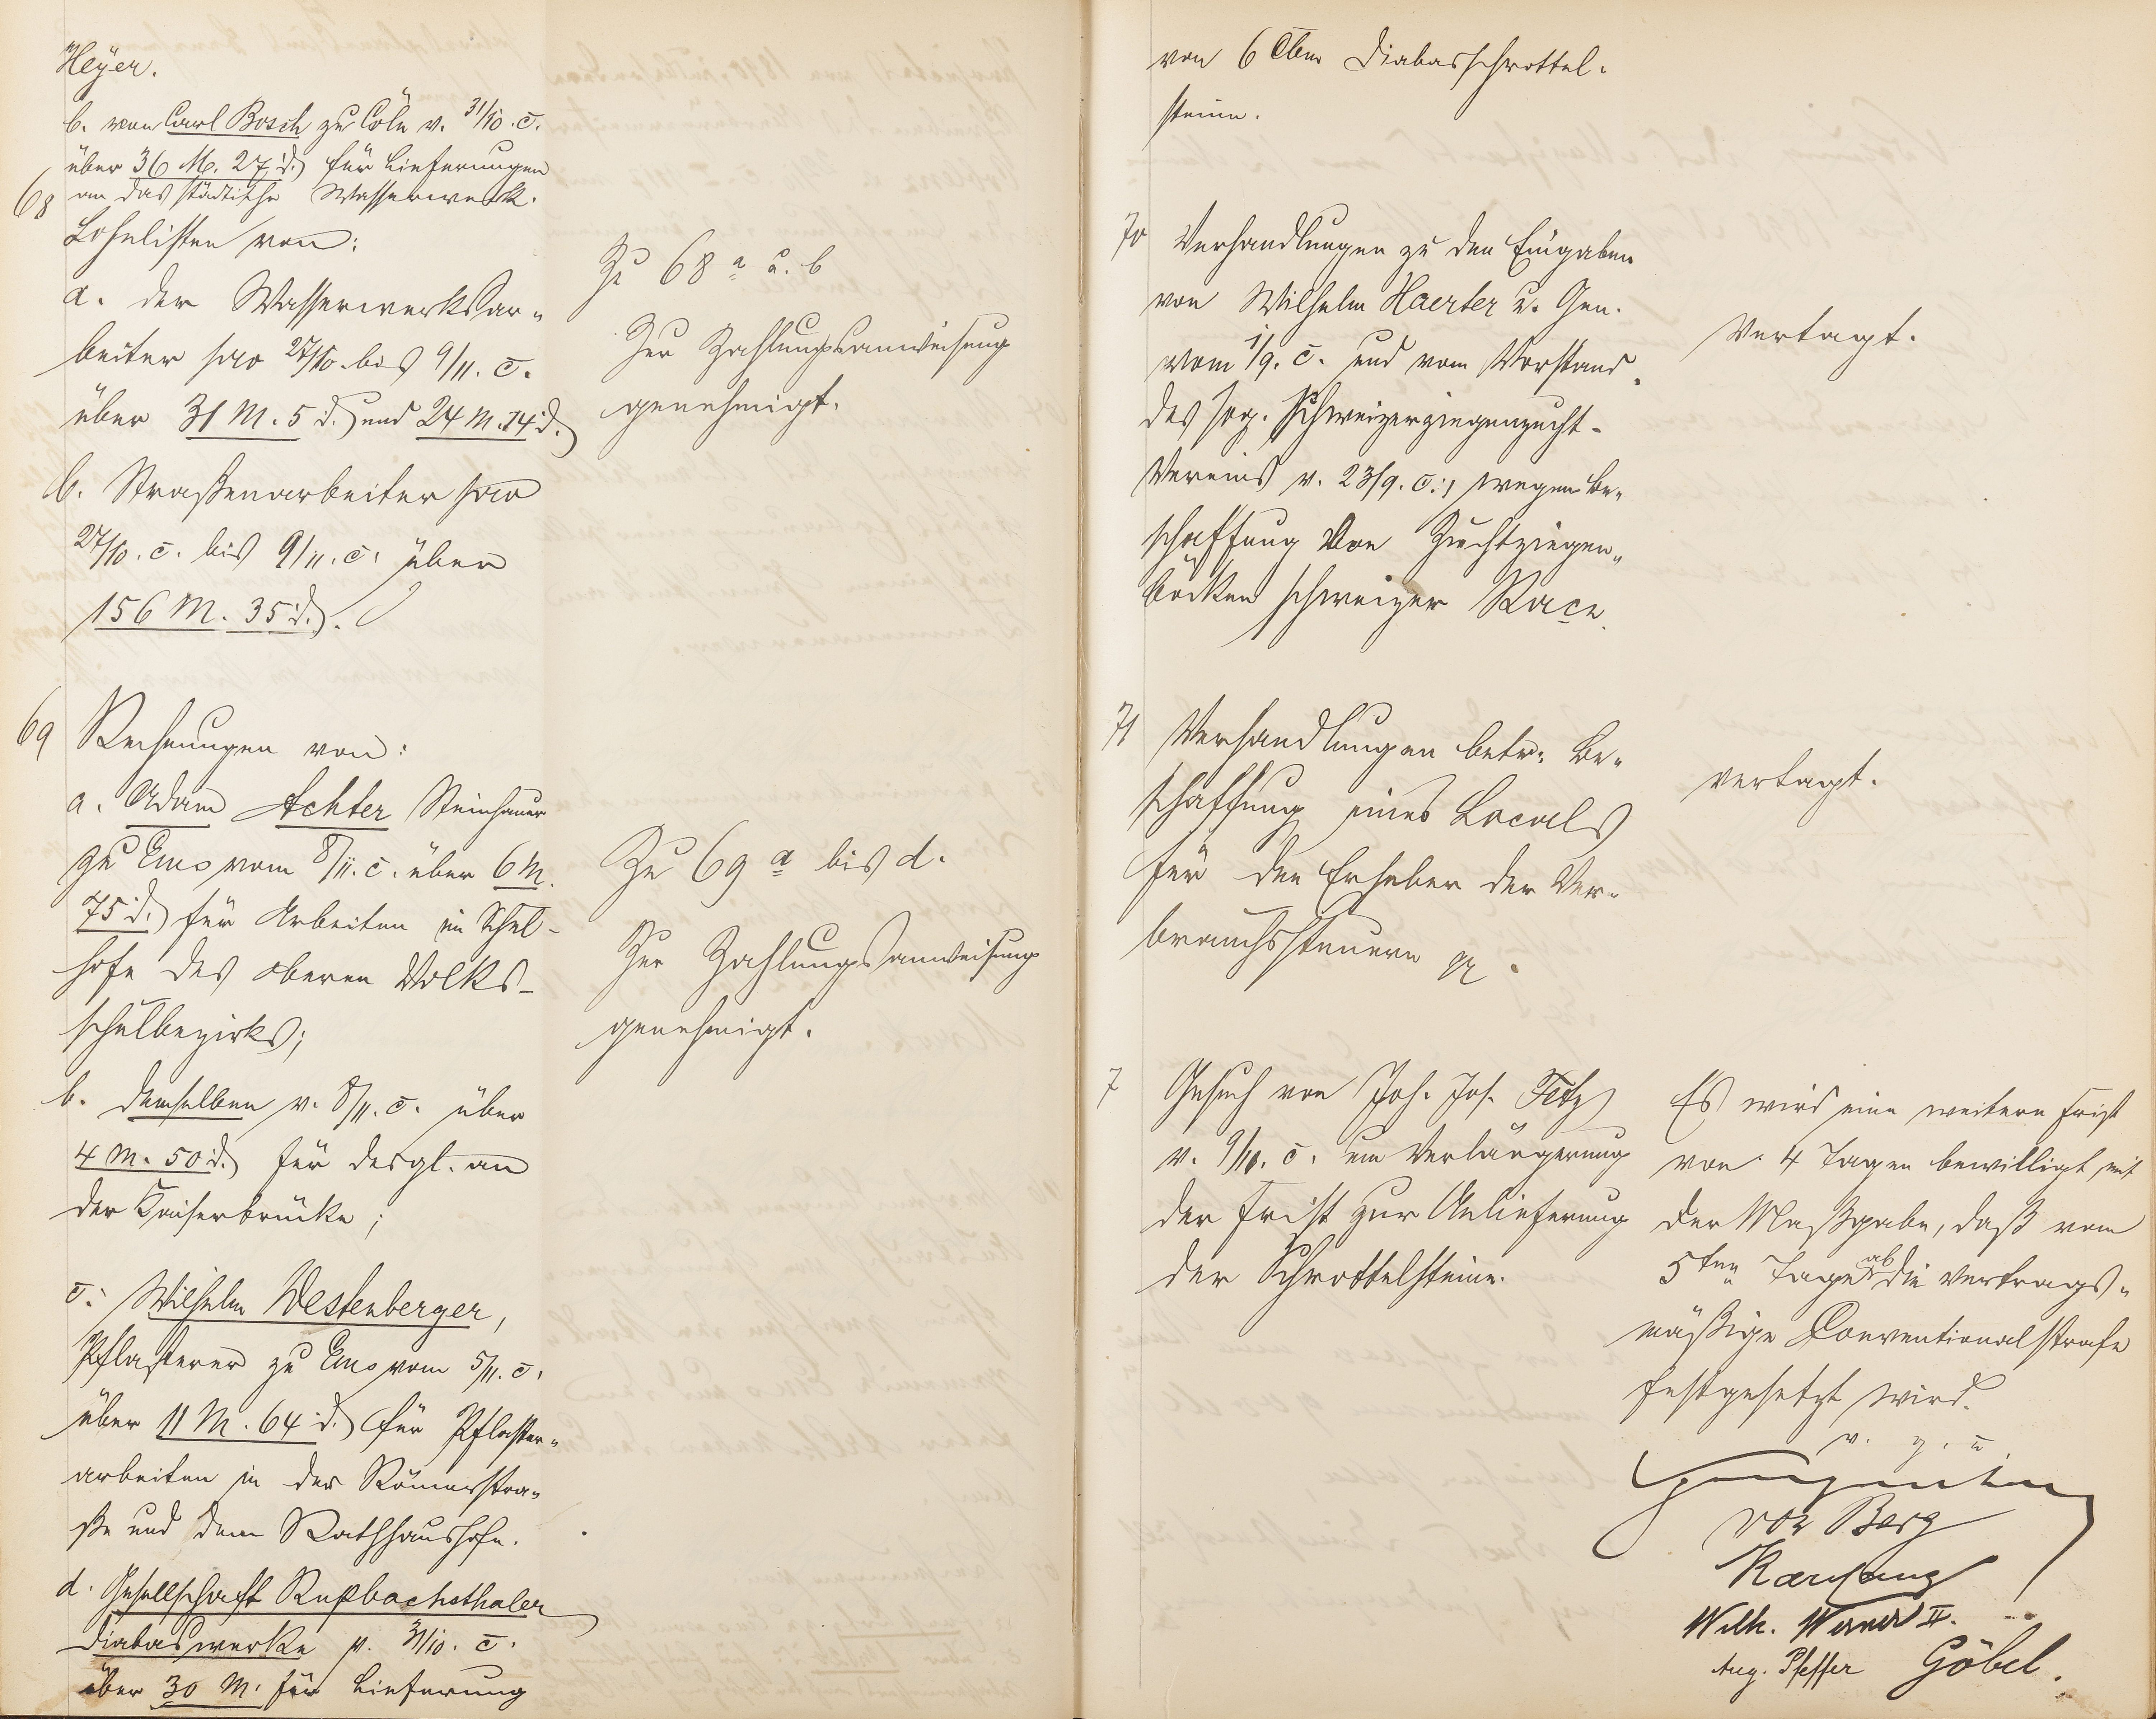 Heyer.
b. von Carl Bosch zu Cöln v. 31/10. c.
über 36 M. 27 d. für Lieferungen
an das städtische Wasserwerk.
68
Lohnlisten von:
a. der Wasserwerksar-
beiter pro 27/10. bis 9/11. c.
über 31 M. 5 d. und 24 M. 14 d.
b. Straßenarbeiter pro
27/10. c. bis 9/11. c. über
156 M. 35 d.
Zu 68 a u. b
Zur Zahlungsanweisung
genehmigt.
69 Rechnungen von:
a. Adam Achter Steinhauer
zu Ems vom 8/11. c. über 6 M.
75 d. für Arbeiten im Schul-
hofe des oberen Volks-
schulbezirks;
b. demselben v. 8/11. c. über
4 M. 50 d. für desgl. an
der Kaiserbrücke;
c. Wilhelm Westenberger,
Pflasterer zu Ems vom 5/11. c.
über 11 M. 64 d. für Pflaster-
arbeiten in der Römerstra-
ße und dem Rathhaushofe.
d. Gesellschaft Rupbachsthaler
Diabaswerke v. 31/10. c.
über 30 M. für Lieferung
Zu 69 a bis d.
Zur Zahlungsanweisung
genehmigt.
von 6 Cbm Diabasschrottel-
steine.
70 Verhandlungen zu den Eingaben
von Wilhelm Haerter u. Gen.
vom 1/9. c. und vom Vorstand
des sog. Schweizerziegenzucht-
Vereins v. 23/9. c., wegen Be-
schaffung von Zuchtziegen-
böcken schweizer Race.
Vertagt.
71 Verhandlungen betr. Be-
schaffung eines Locals
für den Erheber der Ver-
brauchssteuern pp.
vertagt.
7 Gesuch von Joh. Jos. Fetz
v. 9/11. c. um Verlängerung
der Frist zur Anlieferung
der Schrottelsteine.
Es wird eine weitere Frist
von 4 Tagen bewilligt, mit
der Maßgabe, daß vom
5ten Tage ab die vertrags-
mäßige Conventionalstrafe
festgesetzt wird.
v. g. u.
vor Berg
Wilh. Werner II.
Aug. Pfeffer Göbel.